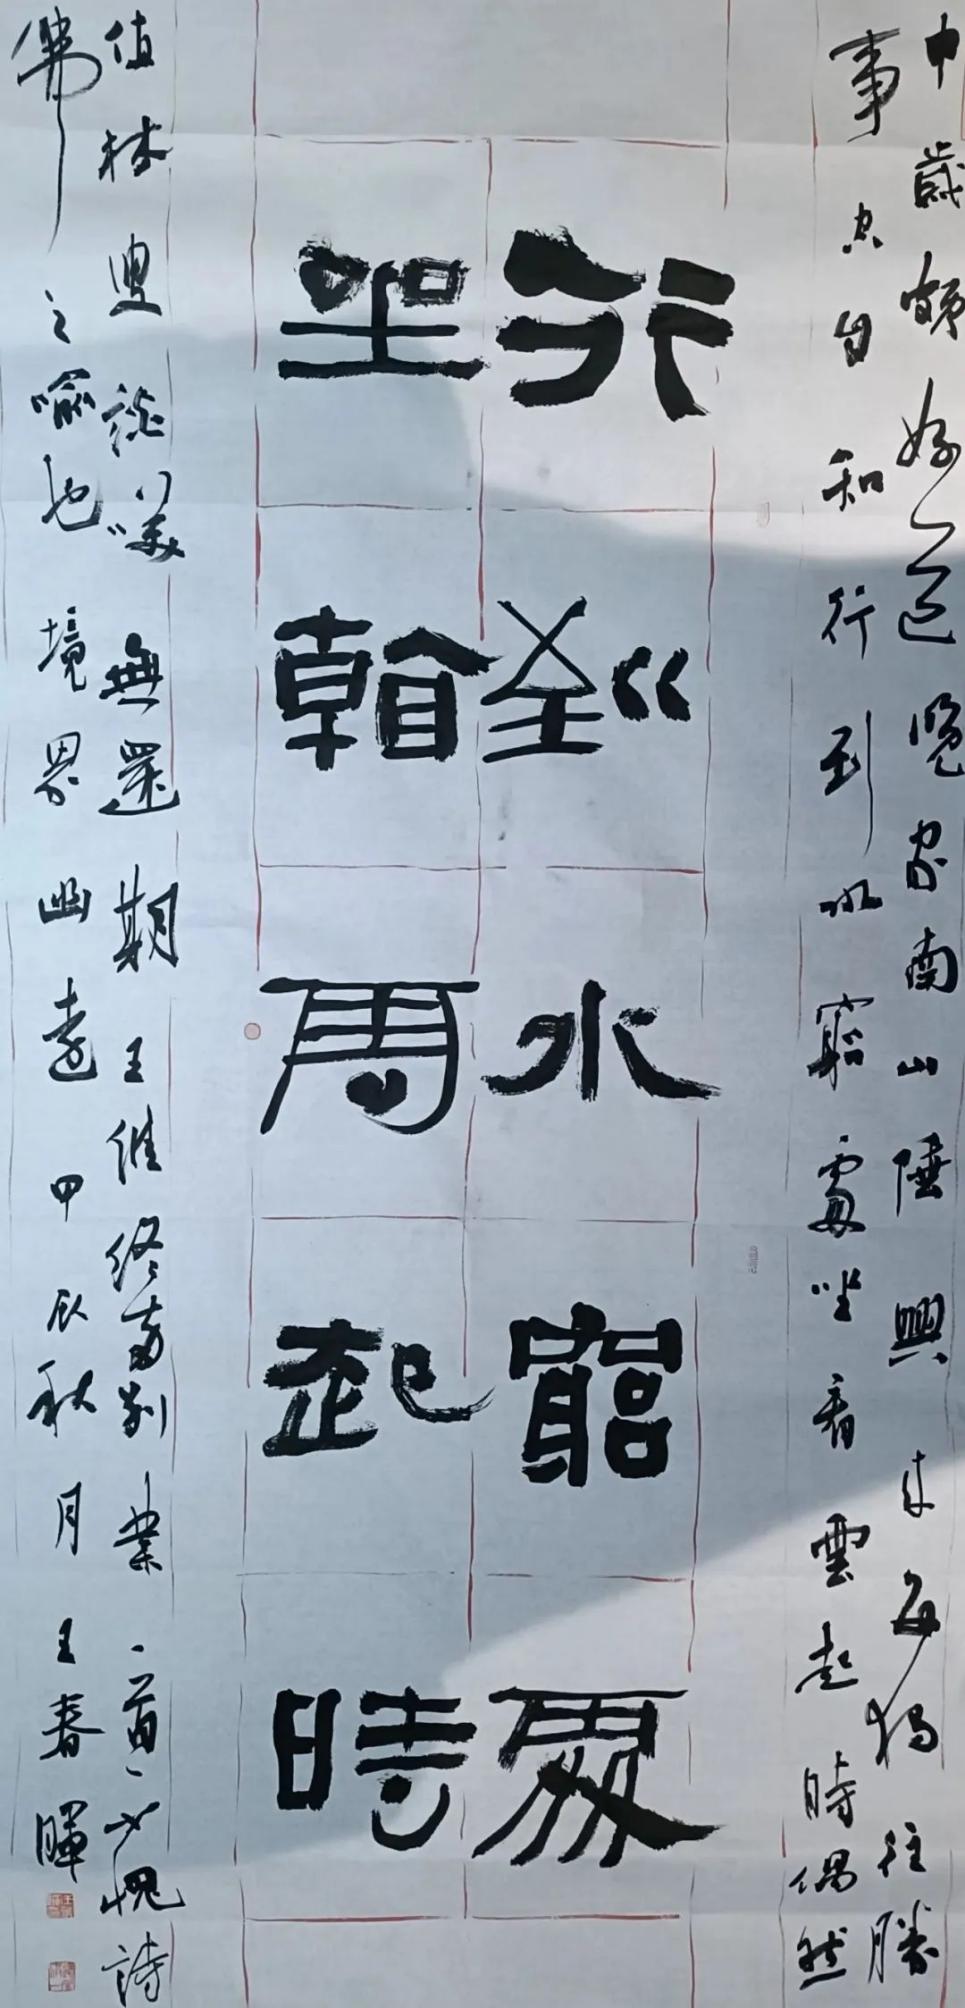 中歲頗好道晚家南山陲興來每獨往勝
事空自知行到水窮處坐看雲起時偶然
行到水窮處
坐看雲起時
值林叟談笑無還期王維終南別業一首不愧詩
佛之喻也境界幽遠甲辰秋月王春暉